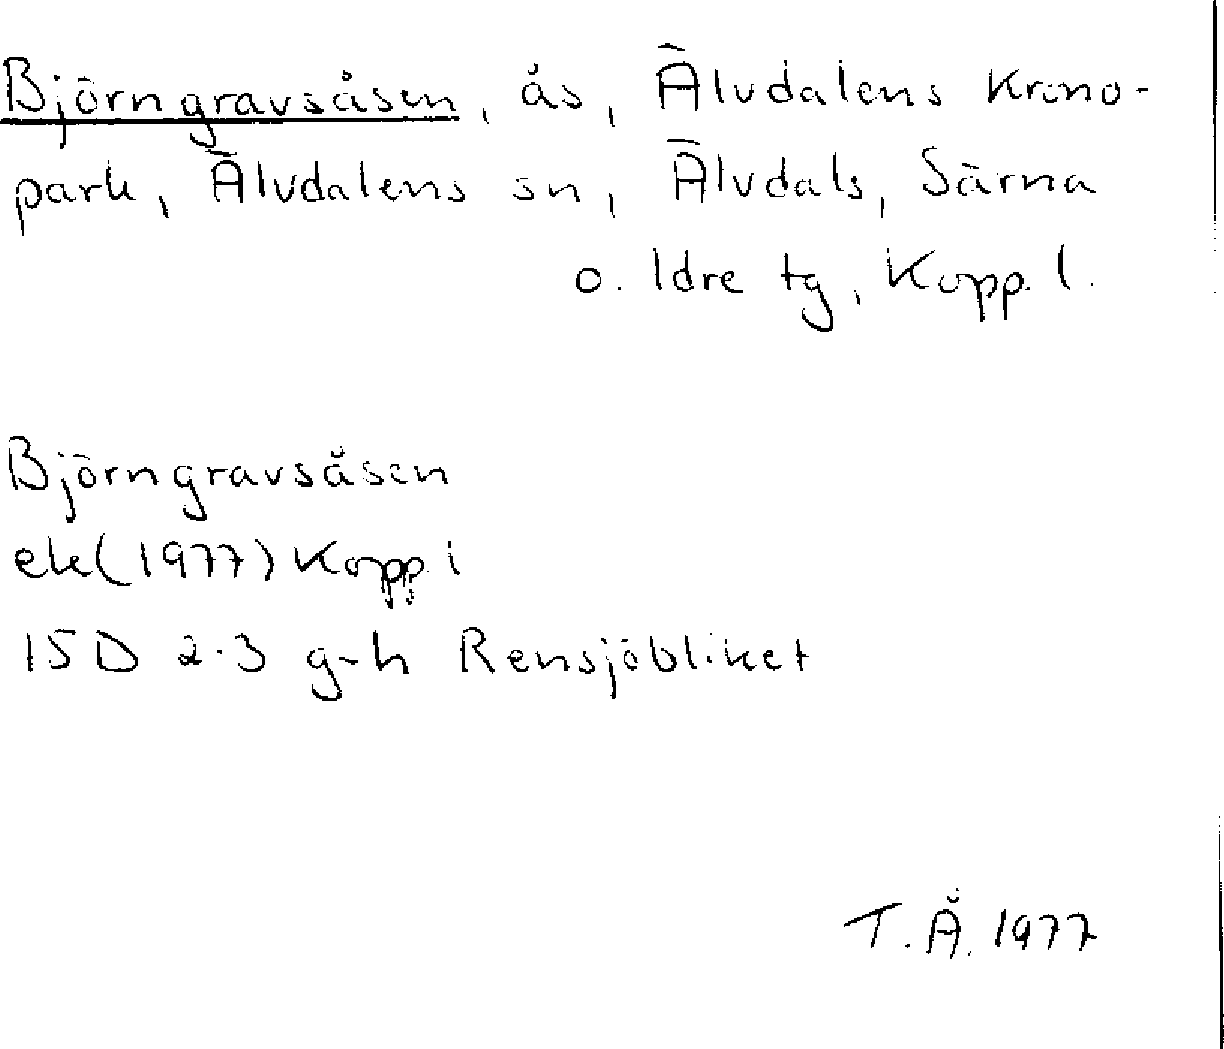 Björngravsåsen, ås, Älvdalens Krono-
park, Älvdalens sn, Älvdals, Särna
o. Idre tg, Kopp. l.
Björngravsåsen
ek(1977) Kopp. l
15D 2-3 g-h Rensjöbliket
T.Å. 1977